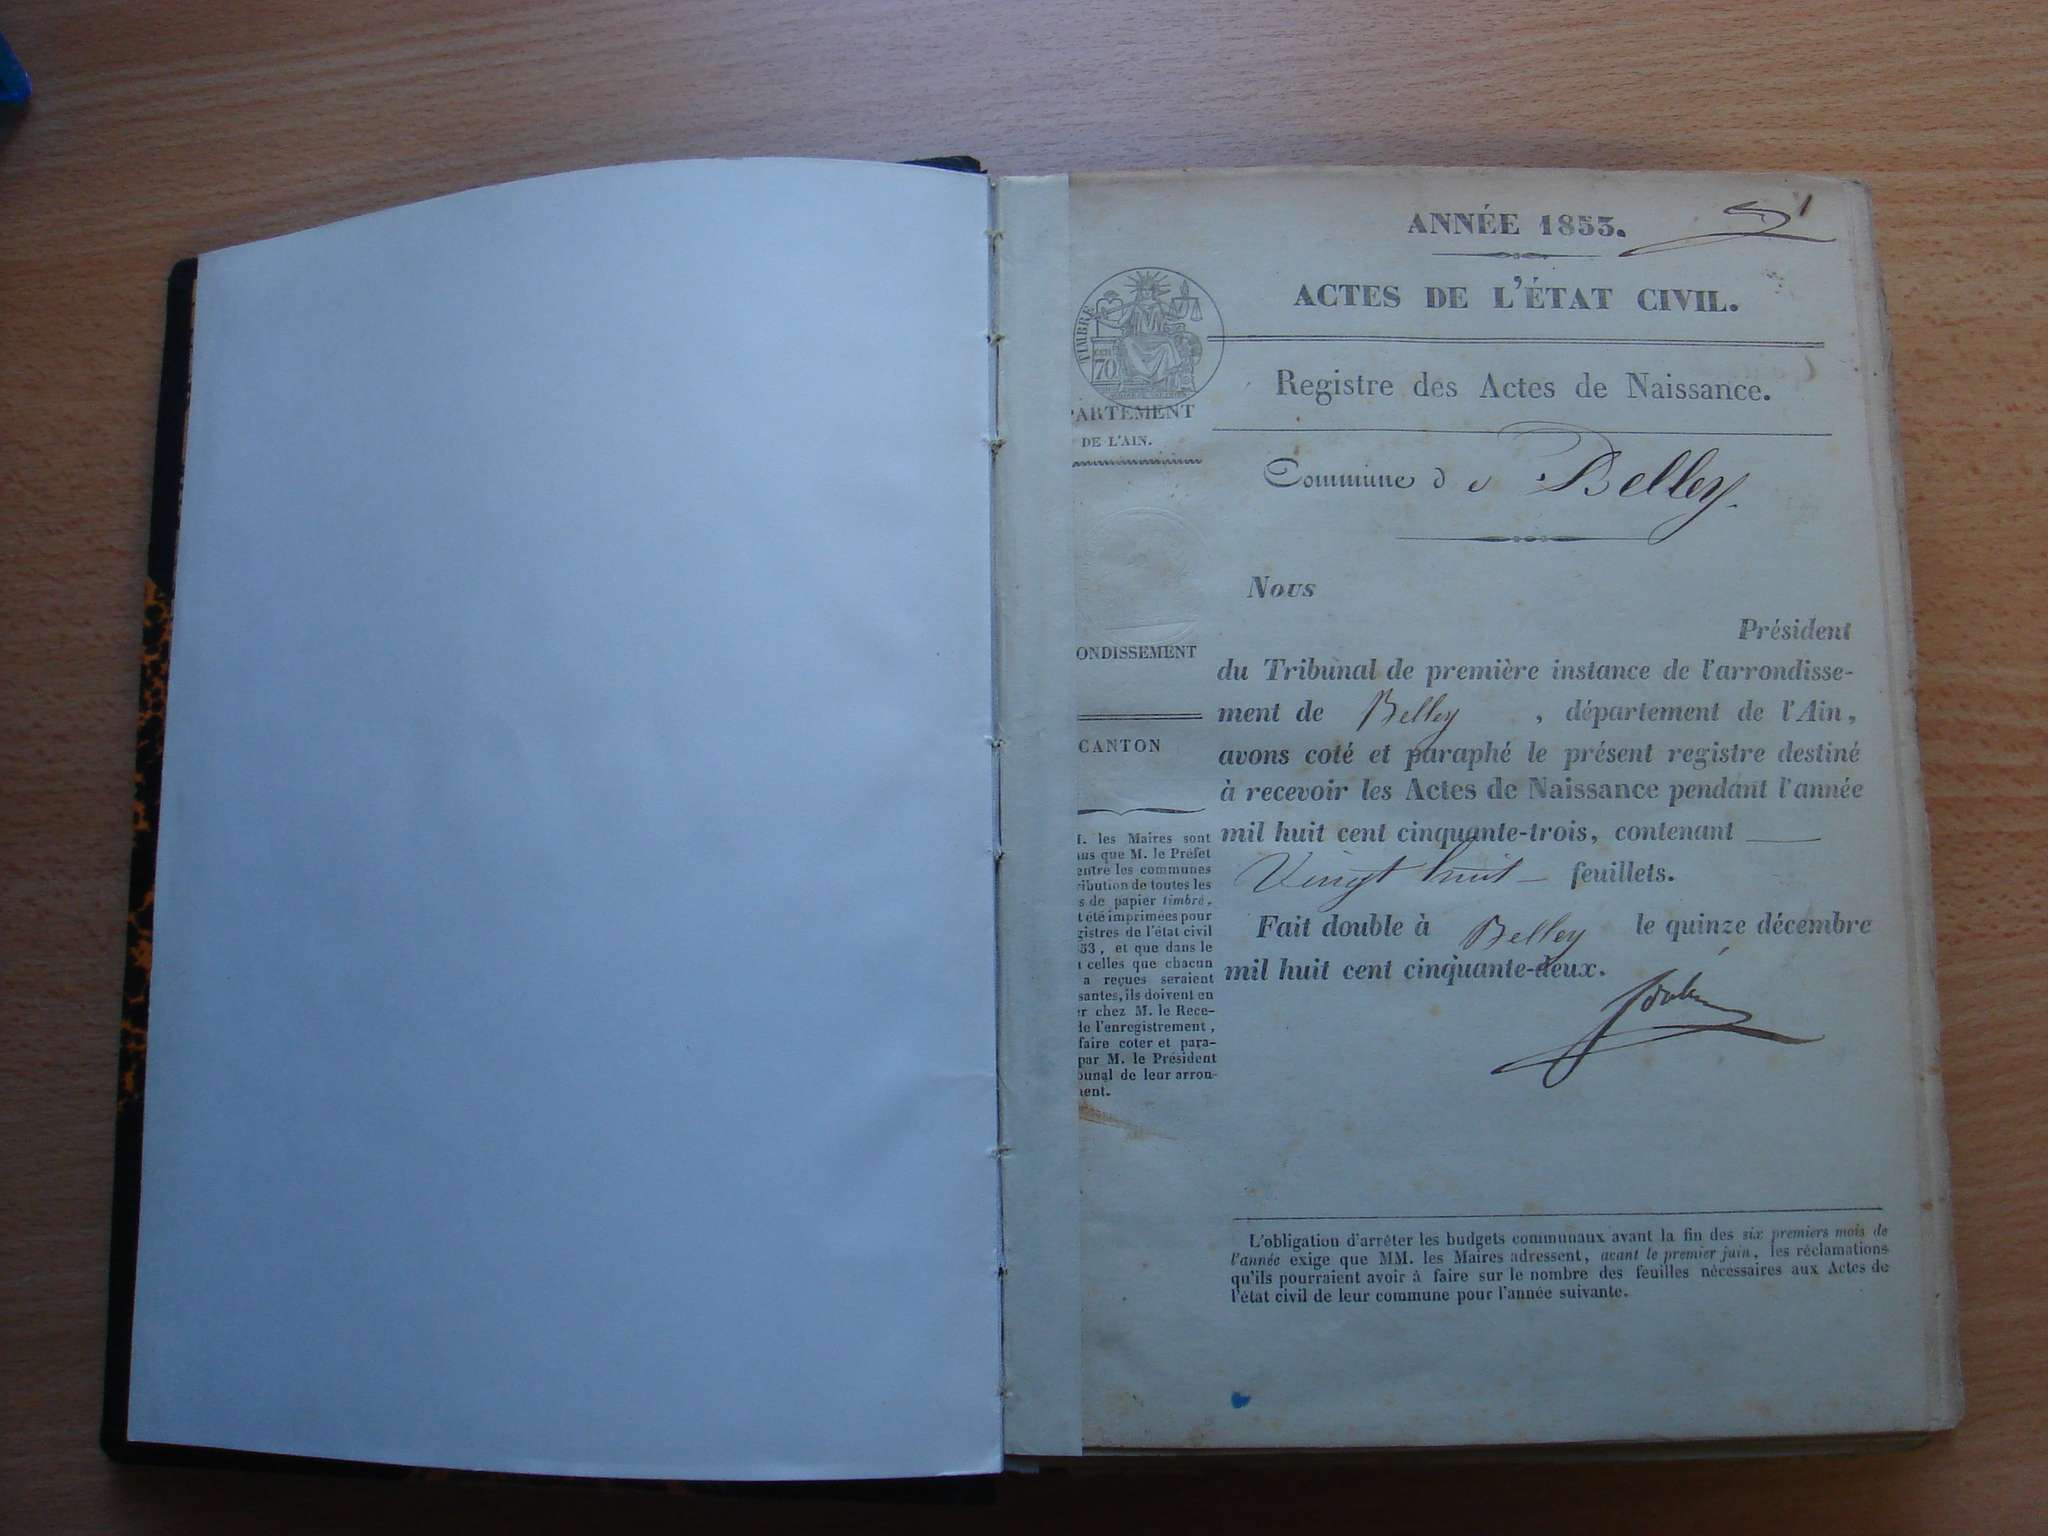 ANNÉE 1853.
1
ACTES DE L'ÉTAT CIVIL.
TIMBRE
70
Registre des Actes de Naissance.
PARTEMENT
DE L'AIN.
Commune de Belley
ONDISSEMENT
CANTON
I. les Maires sont
us que M. le Préfet
entre les communes
ribution de toutes les
s de papier timbré,
t été imprimées pour
gistres de l'état civil
53, et que dans le
celles que chacun
a reçues seraient
santes, ils doivent en
r chez M. le Rece-
de l'enregistrement,
faire coter et para-
par M. le Président
bunal de leur arron-
ent.
Nous
Président
du Tribunal de première instance de l'arrondisse-
ment de Belley, département de l'Ain,
avons coté et paraphé le présent registre destiné
à recevoir les Actes de Naissance pendant l'année
mil huit cent cinquante-trois, contenant
Vingt huit feuillets.
Fait double à Belley le quinze décembre
mil huit cent cinquante-deux.
L'obligation d'arrêter les budgets communaux avant la fin des six premiers mois de
l'année exige que MM. les Maires adressent, avant le premier juin, les réclamations
qu'ils pourraient avoir à faire sur le nombre des feuilles nécessaires aux Actes de
l'état civil de leur commune pour l'année suivante.